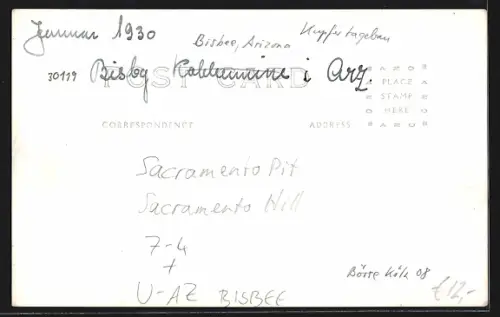 Januar 1930
Bisbee, Arizona
Kupfertagebau
30119
Bisby i Arz.
POST CARD
AZO
PLACE
STAMP
HERE
AZO
CORRESPONDENCE
ADDRESS
Sacramento Pit
Sacramento Hill
7-4
+
U-AZ BISBEE
Börse Köln 08
€12,-